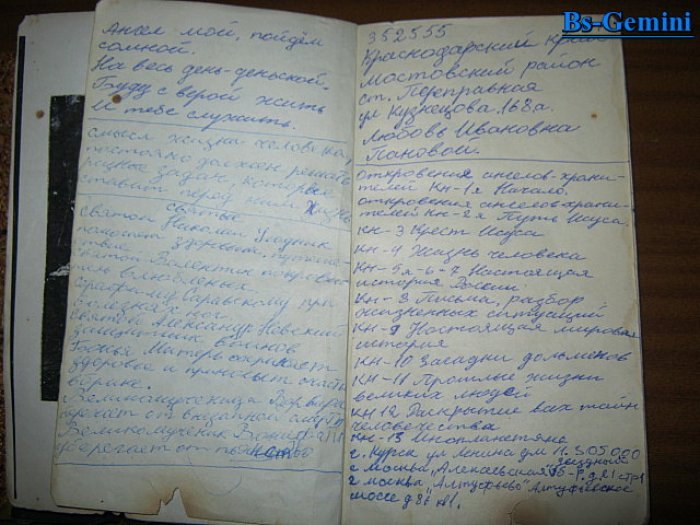 Ангел мой, пойдём
со мной.
На весь день-деньской.
Буду с верой жить
И тебе служить.
смысл жизни человека,
постояно должен решать
разные задач, которые
ставит перед ним жизнь
святые
святой Николай Угодник
помогает здоровью, путише
святой Валентин покровитель
влюбленых.
Серафиму Саровскому при
болезнях ног
Святой Александр Невский
защитник воинов
Божья Матерь сохраняет
здоровье и
Великомученица Варвара
спасает от внезапной смерти
Великомученик
уберегает от пьянства
Bs-Gemini
352555
Краснодарский край
Мостовский район
ст. Переправная
ул Кузнецова. 168а.
Любовь Ивановна
Пановой.
откровения ангелов-храни-
телей Кн-1я Начало.
откровения ангелов-храни-
телей Кн-2я Путь Исуса
Кн-3 Крест Исуса
Кн-4 Жизнь человека
Кн-5я-6-7 Настоящая
история России
Кн-8 Письма, разбор
жизненных ситуаций
Кн 9 Настоящая мировая
история
Кн-10 Загадки дольменов
Кн-11 Прошлые жизни
великих людей
Кн 12 Раскрытие всех тайн
человечества
Кн-13 Инопланетяне
г. Курск ул Ленина дм 11. 305000
г москва "Алексеевская" Звездный
г москва "Алтуфьево" Алтуфьевское
шоссе д 87 к1.